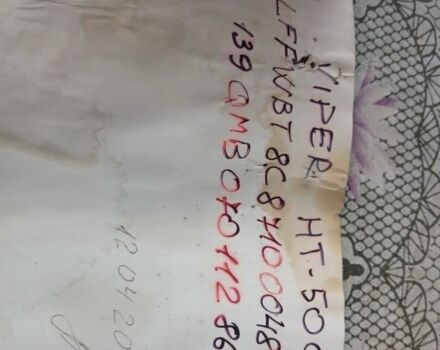 VIPER HT-50
LFFWBT8C87100048
139QMB07011286
12.04.20